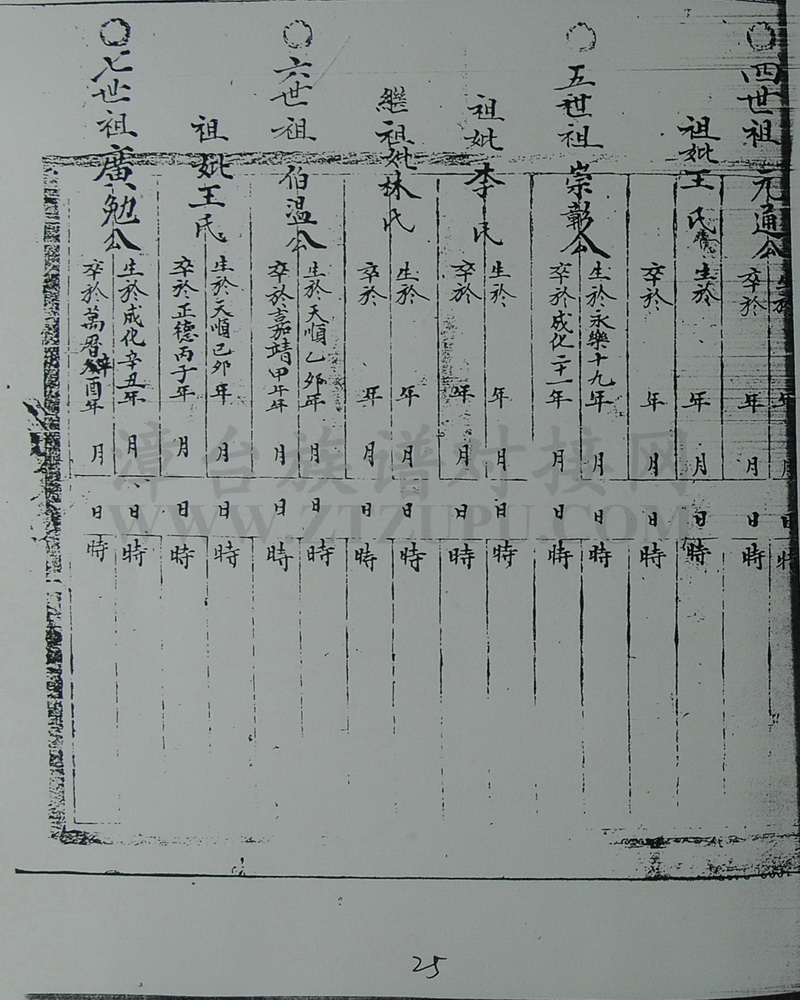 四世祖 元通公
生於 年 月 日 時
卒於 年 月 日 時
祖妣王氏
生於 年 月 日 時
卒於 年 月 日 時
五世祖 崇彰公
生於永樂十九年 月 日 時
卒於成化二十一年 月 日 時
祖妣李氏
生於 年 月 日 時
卒於 年 月 日 時
繼祖妣林氏
生於 年 月 日 時
卒於 年 月 日 時
六世祖 伯溫公
生於天順乙卯年 月 日 時
卒於嘉靖甲午年 月 日 時
祖妣王氏
生於天順己卯年 月 日 時
卒於正德丙子年 月 日 時
七世祖廣勉公
生於成化辛丑年 月 日 時
卒於萬曆辛酉年 月 日 時
漳台族谱对接网
WWW.ZTZUPU.COM
25